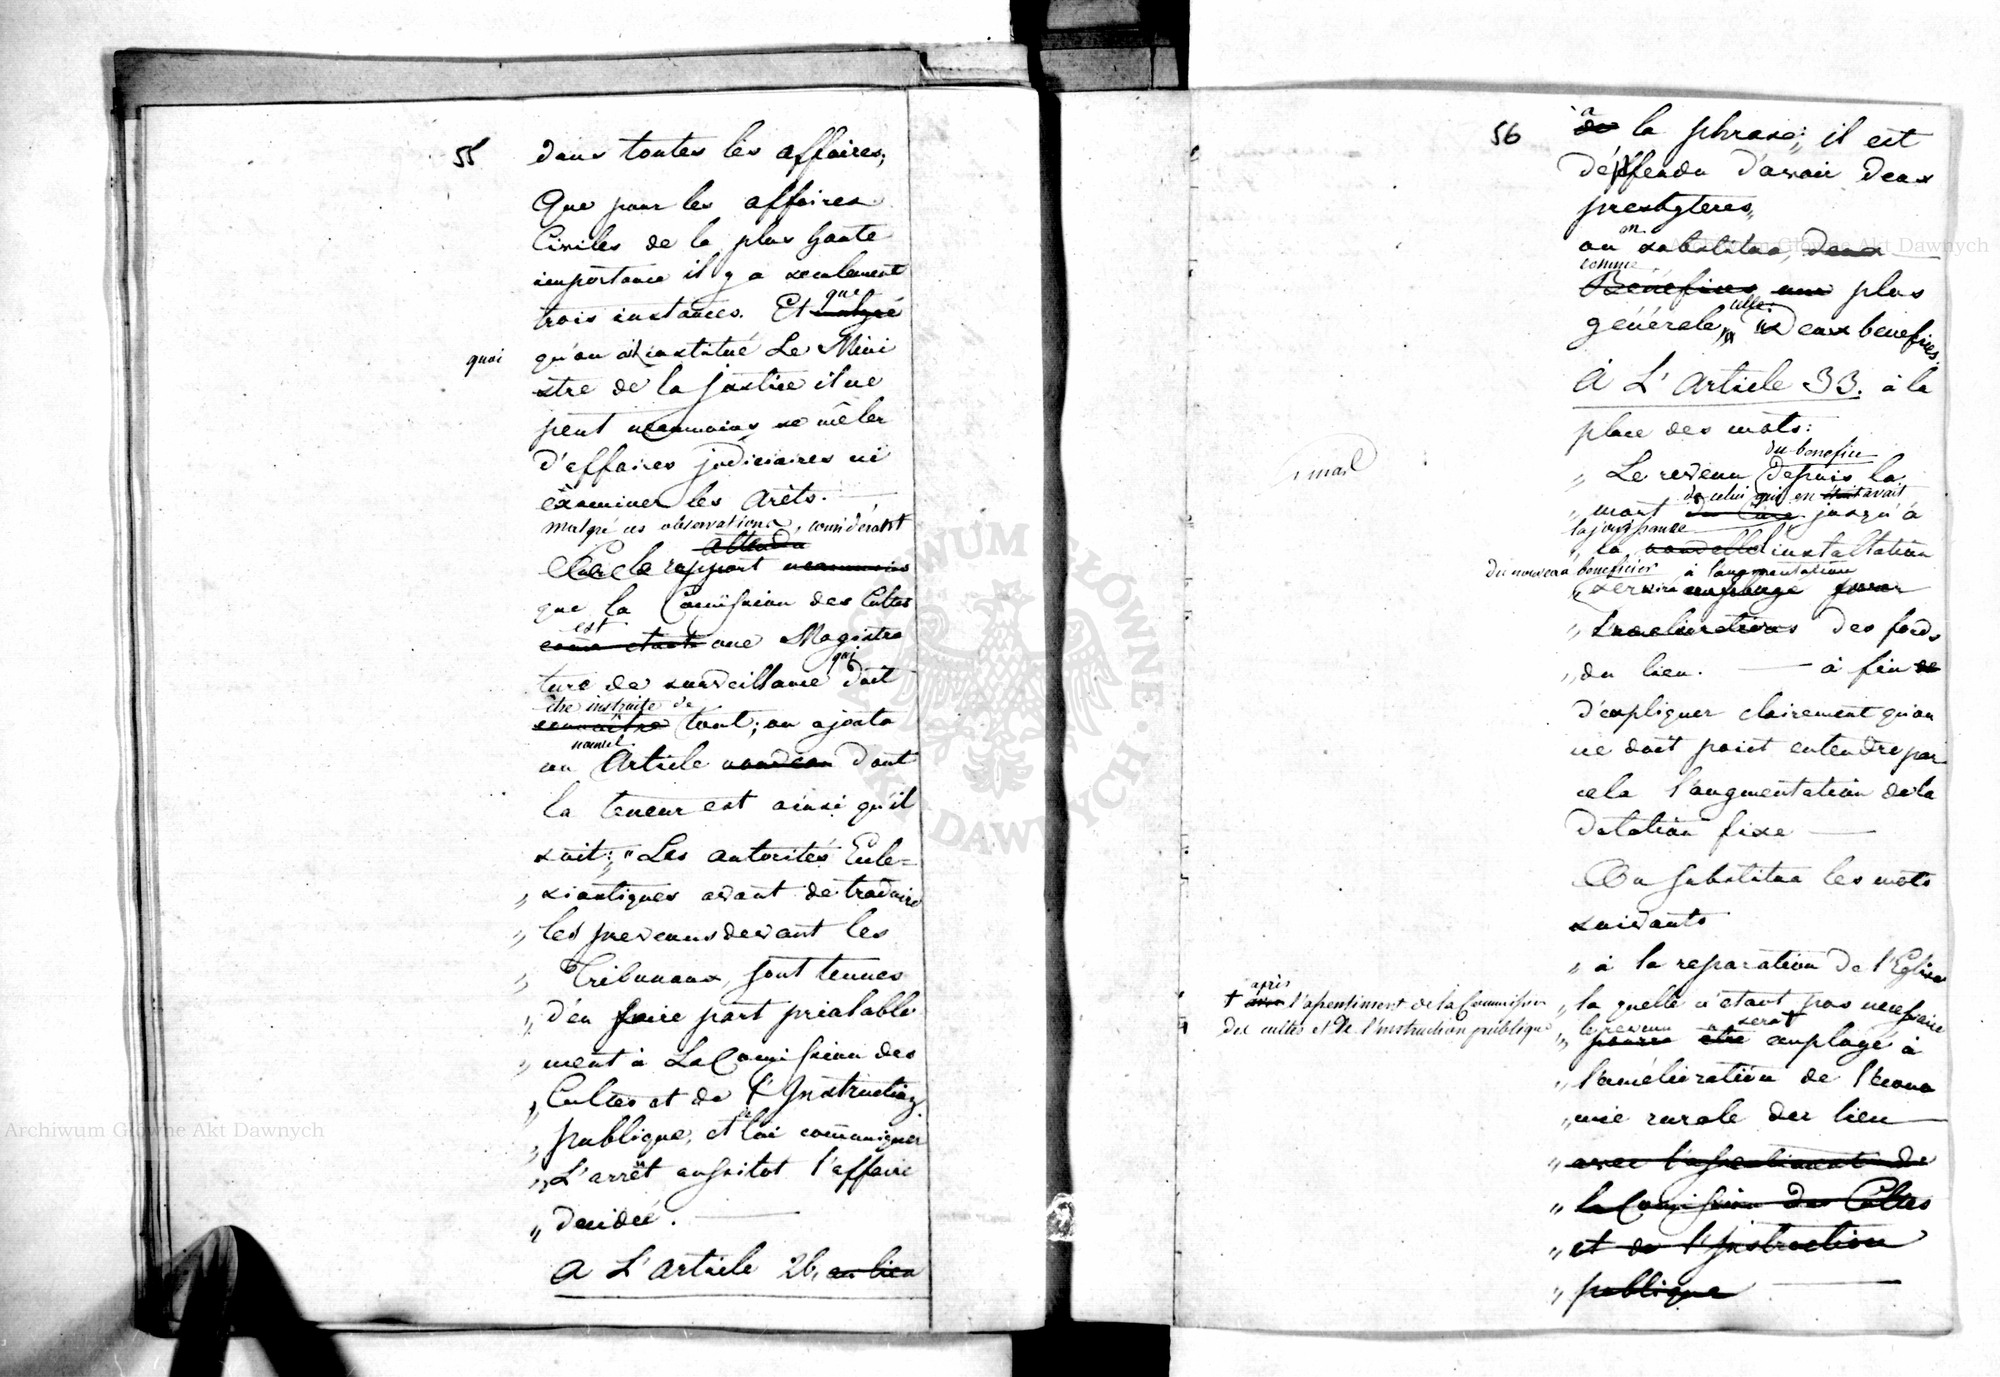 55
dans toutes les affaires,
Que pour les affaires
Civiles de la plus haute
importance il y a seulement
que
trois instances. Et malgré
quoi qu'on ait institué Le Mini
stre de la justice il ne
peut neanmoins se mêler
d'affaires judiciaires ni
éxaminer les arêts.
malgré ces observations, considérant
attendu
le rapport neanmoins
que la Comission des Cultes
est
come etant une Magistra
qui
ture de surveillance doit
être instruite de
connaître tout; on ajouta
nouvel
un Article nouveau dont
la teneur est ainsi qu'il
suit: „Les autorités Eccle-
„ siastiques avant de traduire
„ les prevenus devant les
„ Tribunaux, sont tenues
„ d'en faire part préalable
„ ment à La Comission des
„ Cultes et de l'Instruction
„ publique, et de lui comuniquer
„ L'arrêt aussitot l'affaire
„ decidée.
A L'Article 26, au lieu
56
à
de la phrase; „il est
déffendu d'avoir deux
presbyteres„
on
on substitua, deux
comme
Bénéfices une plus
celle:
générale, „deux benefices.
A L'Article 33. à la
place des mots:
du benefice
„ Le revenu depuis la
de celui qui en était avait
„ mort du Curé jusqu'à
la jouissance
„ la nouvelle installation
du nouveau beneficier à l'augmentation
servira employé pour
„ L'améliorations des fonds
„ du lieu. — à fin de
d'expliquer clairement qu'on
ne doit point entendre par
cela l'augmentation de la
dotation fixe —
On substitua les mots
suivants
„ à la reparation de l'Eglise
„ la quelle n'étant pas necessaire
le revenu sera †
„ pourra etre employé à
après
† avec l'assentiment de la Commission
des cultes et de l'instruction publique
„ l'amélioration de l'écono
„ mie rurale der lieu —
„ avec l'assentiment de
„ la Comission des Cultes
„ et de l'Instruction
„ publique —
Archiwum Główne Akt Dawnych
Archiwum Główne Akt Dawnych
ARCHIWUM GŁÓWNE AKT DAWNYCH